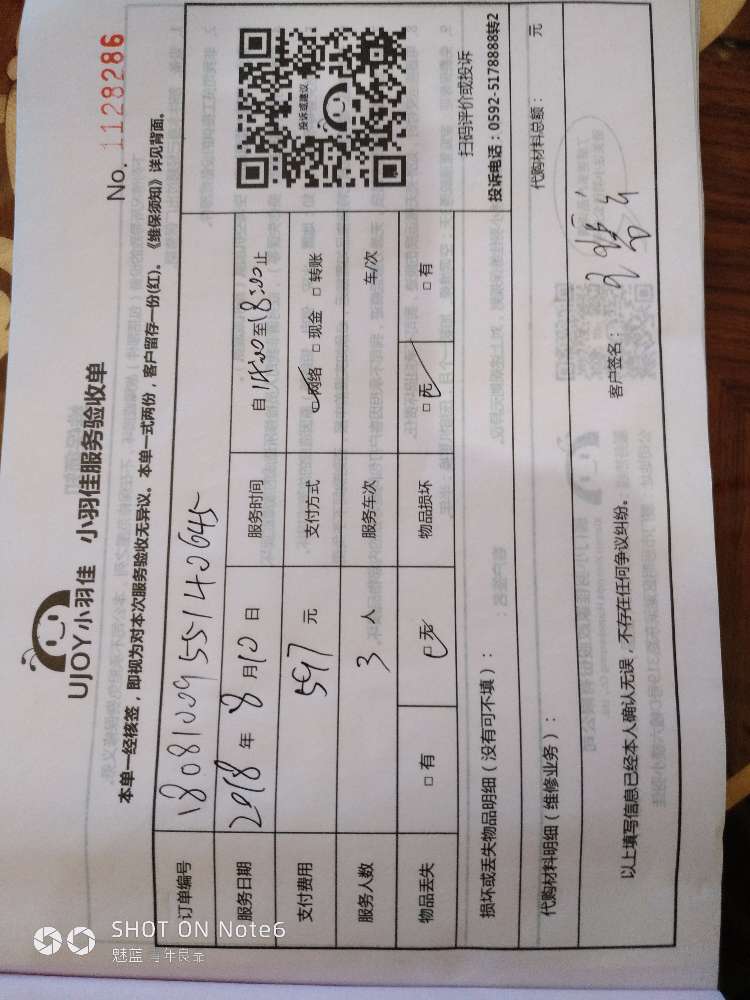 UJOY小羽佳 小羽佳服务验收单
No. 1128286
本单一经核签，即视为对本次服务验收无异议。本单一式两份，客户留存一份(红)。《维保须知》详见背面。
订单编号 18081009551420645
服务日期 2018 年 8 月 10 日 服务时间 自 14:00 至 18:00 止
支付费用 597 元 支付方式 ☑网络 □现金 □转账
服务人数 3 人 服务车次 车/次
物品丢失 □有 ☑无 物品损坏 ☑无 □有
投诉或建议
扫码评价或投诉
投诉电话：0592-5178888转2
损坏或丢失物品明细（没有可不填）：
代购材料明细（维修业务）： 代购材料总额： 元
以上填写信息已经本人确认无误，不存在任何争议纠纷。 客户签名：
SHOT ON Note6
魅蓝 青年良品